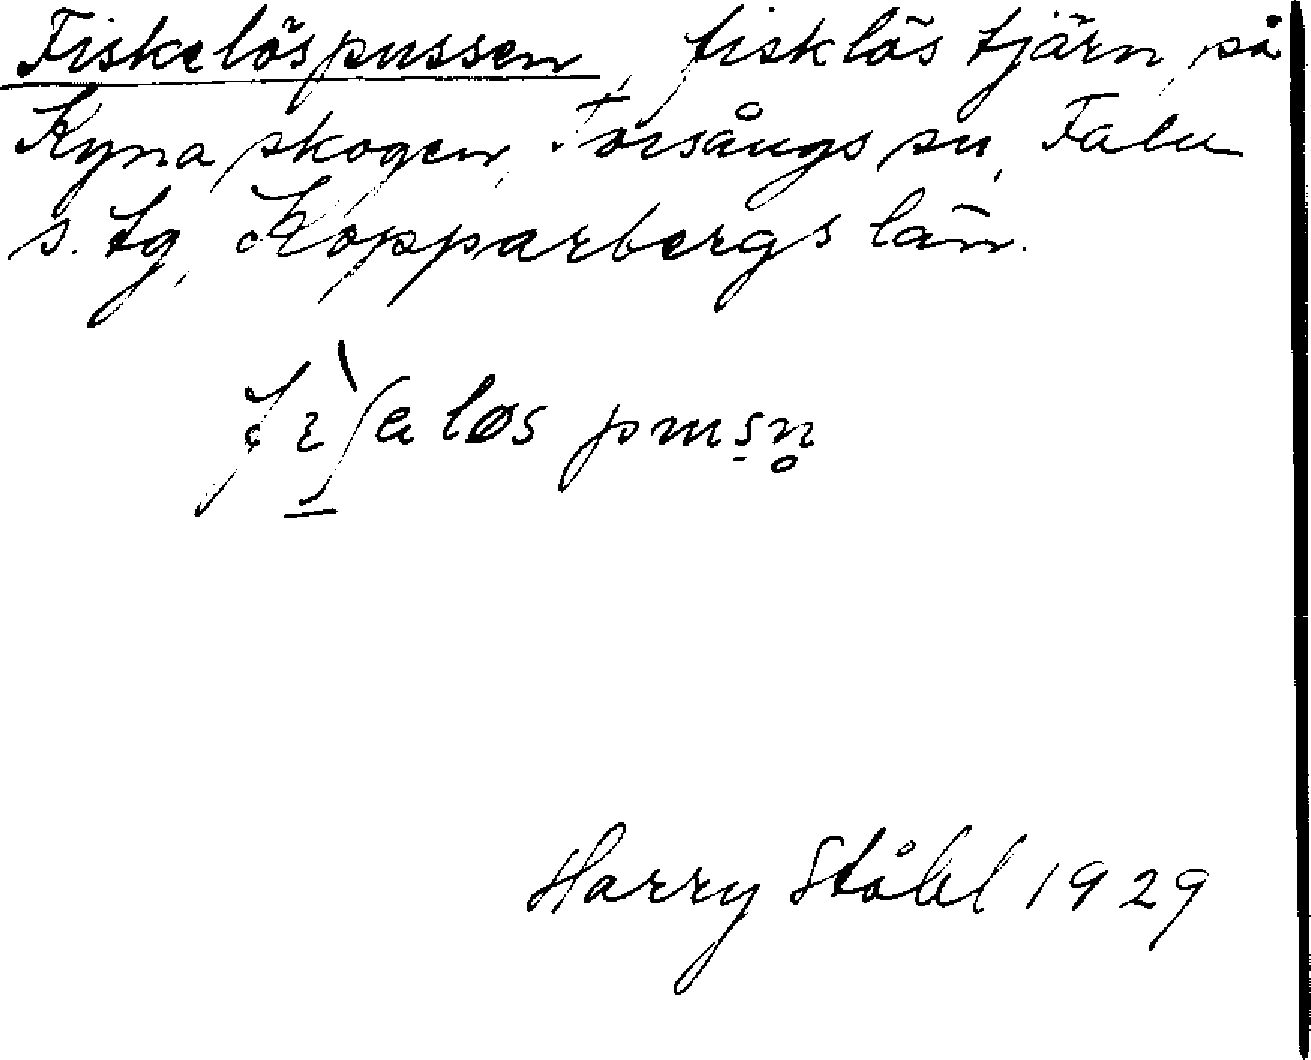 Fiskelöspussen, fisklös tjärn, på
Kyna skogen, Torsångs sn, Falu
s. tg, Kopparbergs län.
Harry Ståhl 1929